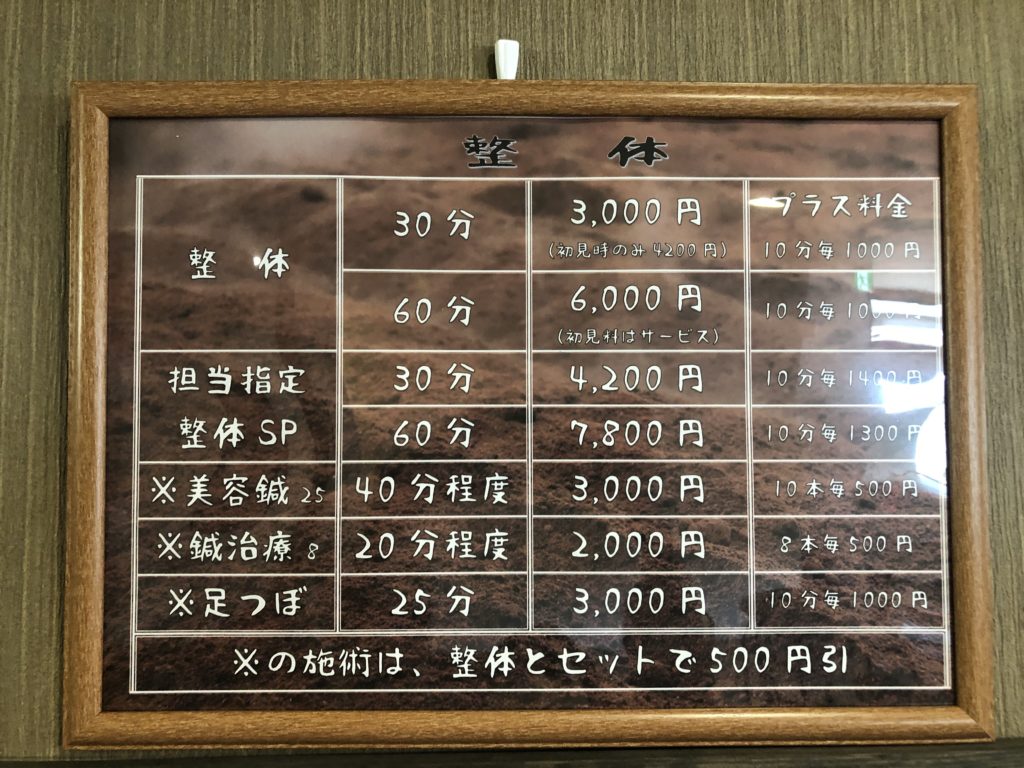 整 体
整 体 30分 3,000円 プラス料金
(初見時のみ4200円) 10分毎1000円
60分 6,000円 10分毎1000円
(初見料はサービス)
担当指定 30分 4,200円 10分毎1400円
整体SP 60分 7,800円 10分毎1300円
※美容鍼25 40分程度 3,000円 10本毎500円
※鍼治療8 20分程度 2,000円 8本毎500円
※足つぼ 25分 3,000円 10分毎1000円
※の施術は、整体とセットで500円引